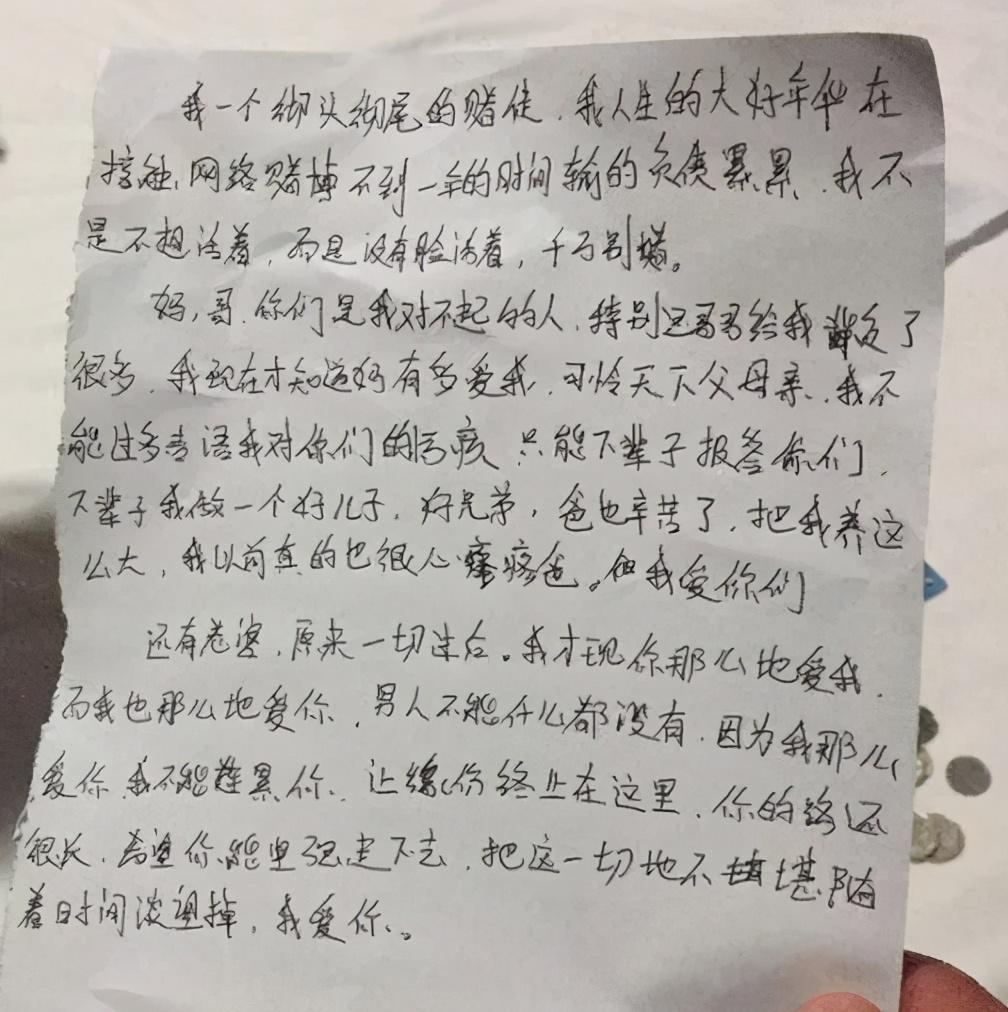 我一个彻头彻尾的赌徒，我人生的大好年华在
接触网络赌博不到一年的时间输的负债累累，我不
是不想活着，而是没有脸活着，千万别赌。
妈，哥，你们是我对不起的人，特别还哥哥给我
很多，我现在才知道妈有多爱我，可怜天下父母亲，我不
能过多言语我对你们的亏疚 只能下辈子报答你们，
下辈子我做一个好儿子，好兄弟，爸也辛苦了，把我养这
么大，我以前真的也很心疼爸。但我爱你们
还有老婆，原来一切过后。我才现你那么地爱我，
而我也那么地爱你，男人不能什么都没有，因为我那么
爱你 我不能连累你，让缘份终止在这里，你的路还
很长，希望你能坚强走下去，把这一切地不堪随
着时间淡忘掉，我爱你。